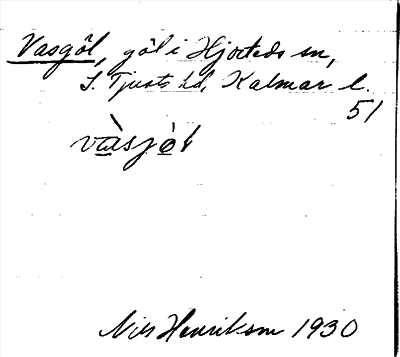 Vasgöl, göl i Hjorteds sn,
S. Tjusts hd, Kalmar l.
51
Nils Henrikson 1930